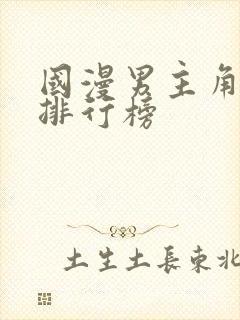 國漫男主角
排行榜
土生土長東北